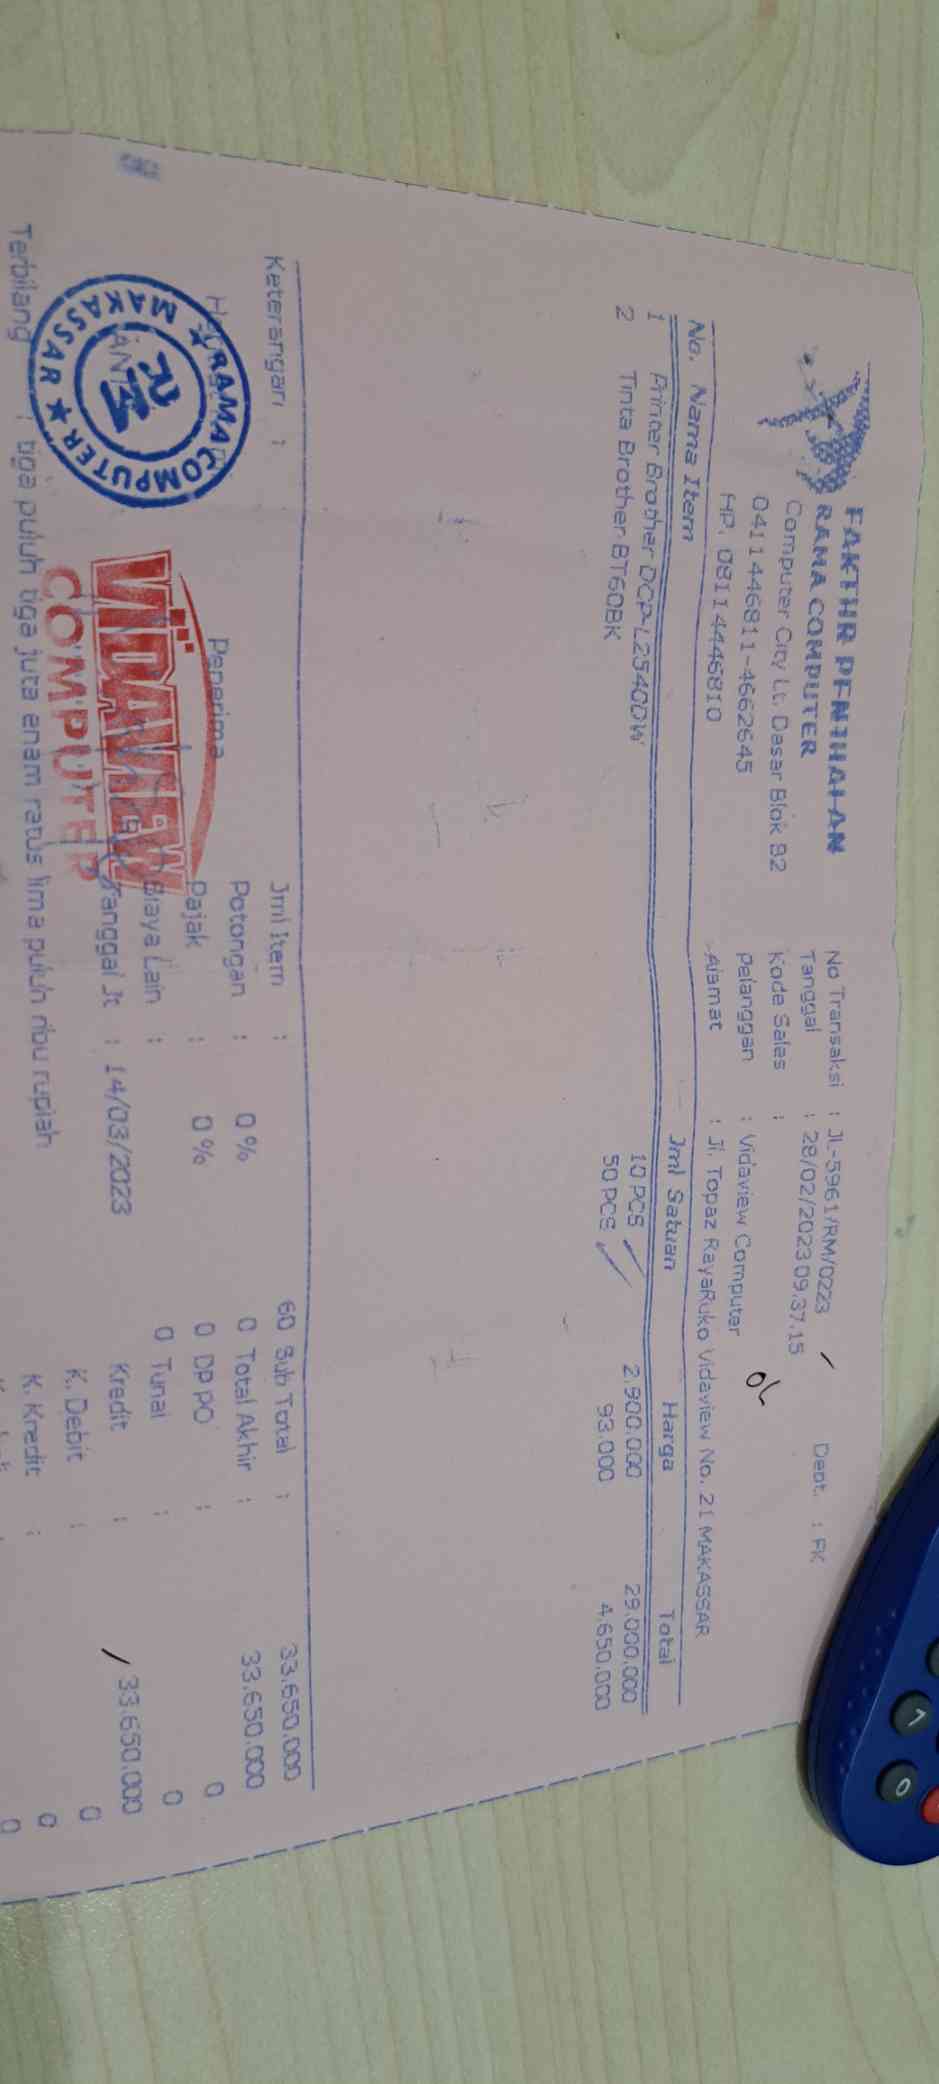 FAKTUR PENJUALAN
RAMA COMPUTER
Computer City Lt. Dasar Blok B2
0411446811-4662645
HP. 08114446810
No Transaksi : JL-5961/RM/0223 Dept. : FK
Tanggal : 28/02/2023 09.37.15
Kode Sales :
Pelanggan : Vidaview Computer
Alamat : Jl. Topaz RayaRuko Vidaview No. 21 MAKASSAR
OL
No. Nama Item Jml Satuan Harga Total
1 Printer Brother DCP-L2540DW 10 PCS 2.900.000 29.000.000
2 Tinta Brother BT60BK 50 PCS 93.000 4.650.000
Keterangan :
Jml Item : 60 Sub Total : 33.650.000
Potongan : 0% 0 Total Akhir : 33.650.000
Pajak : 0% 0 DP PO : 0
Biaya Lain : 0 Tunai : 0
Tanggal Jt : 14/03/2023 Kredit : 33.650.000
K. Debit : 0
K. Kredit : 0
0
Penerima
RAMA COMPUTER
MAKASSAR
VIDAVIEW
COMPUTER
Terbilang : tiga puluh tiga juta enam ratus lima puluh ribu rupiah
1
0